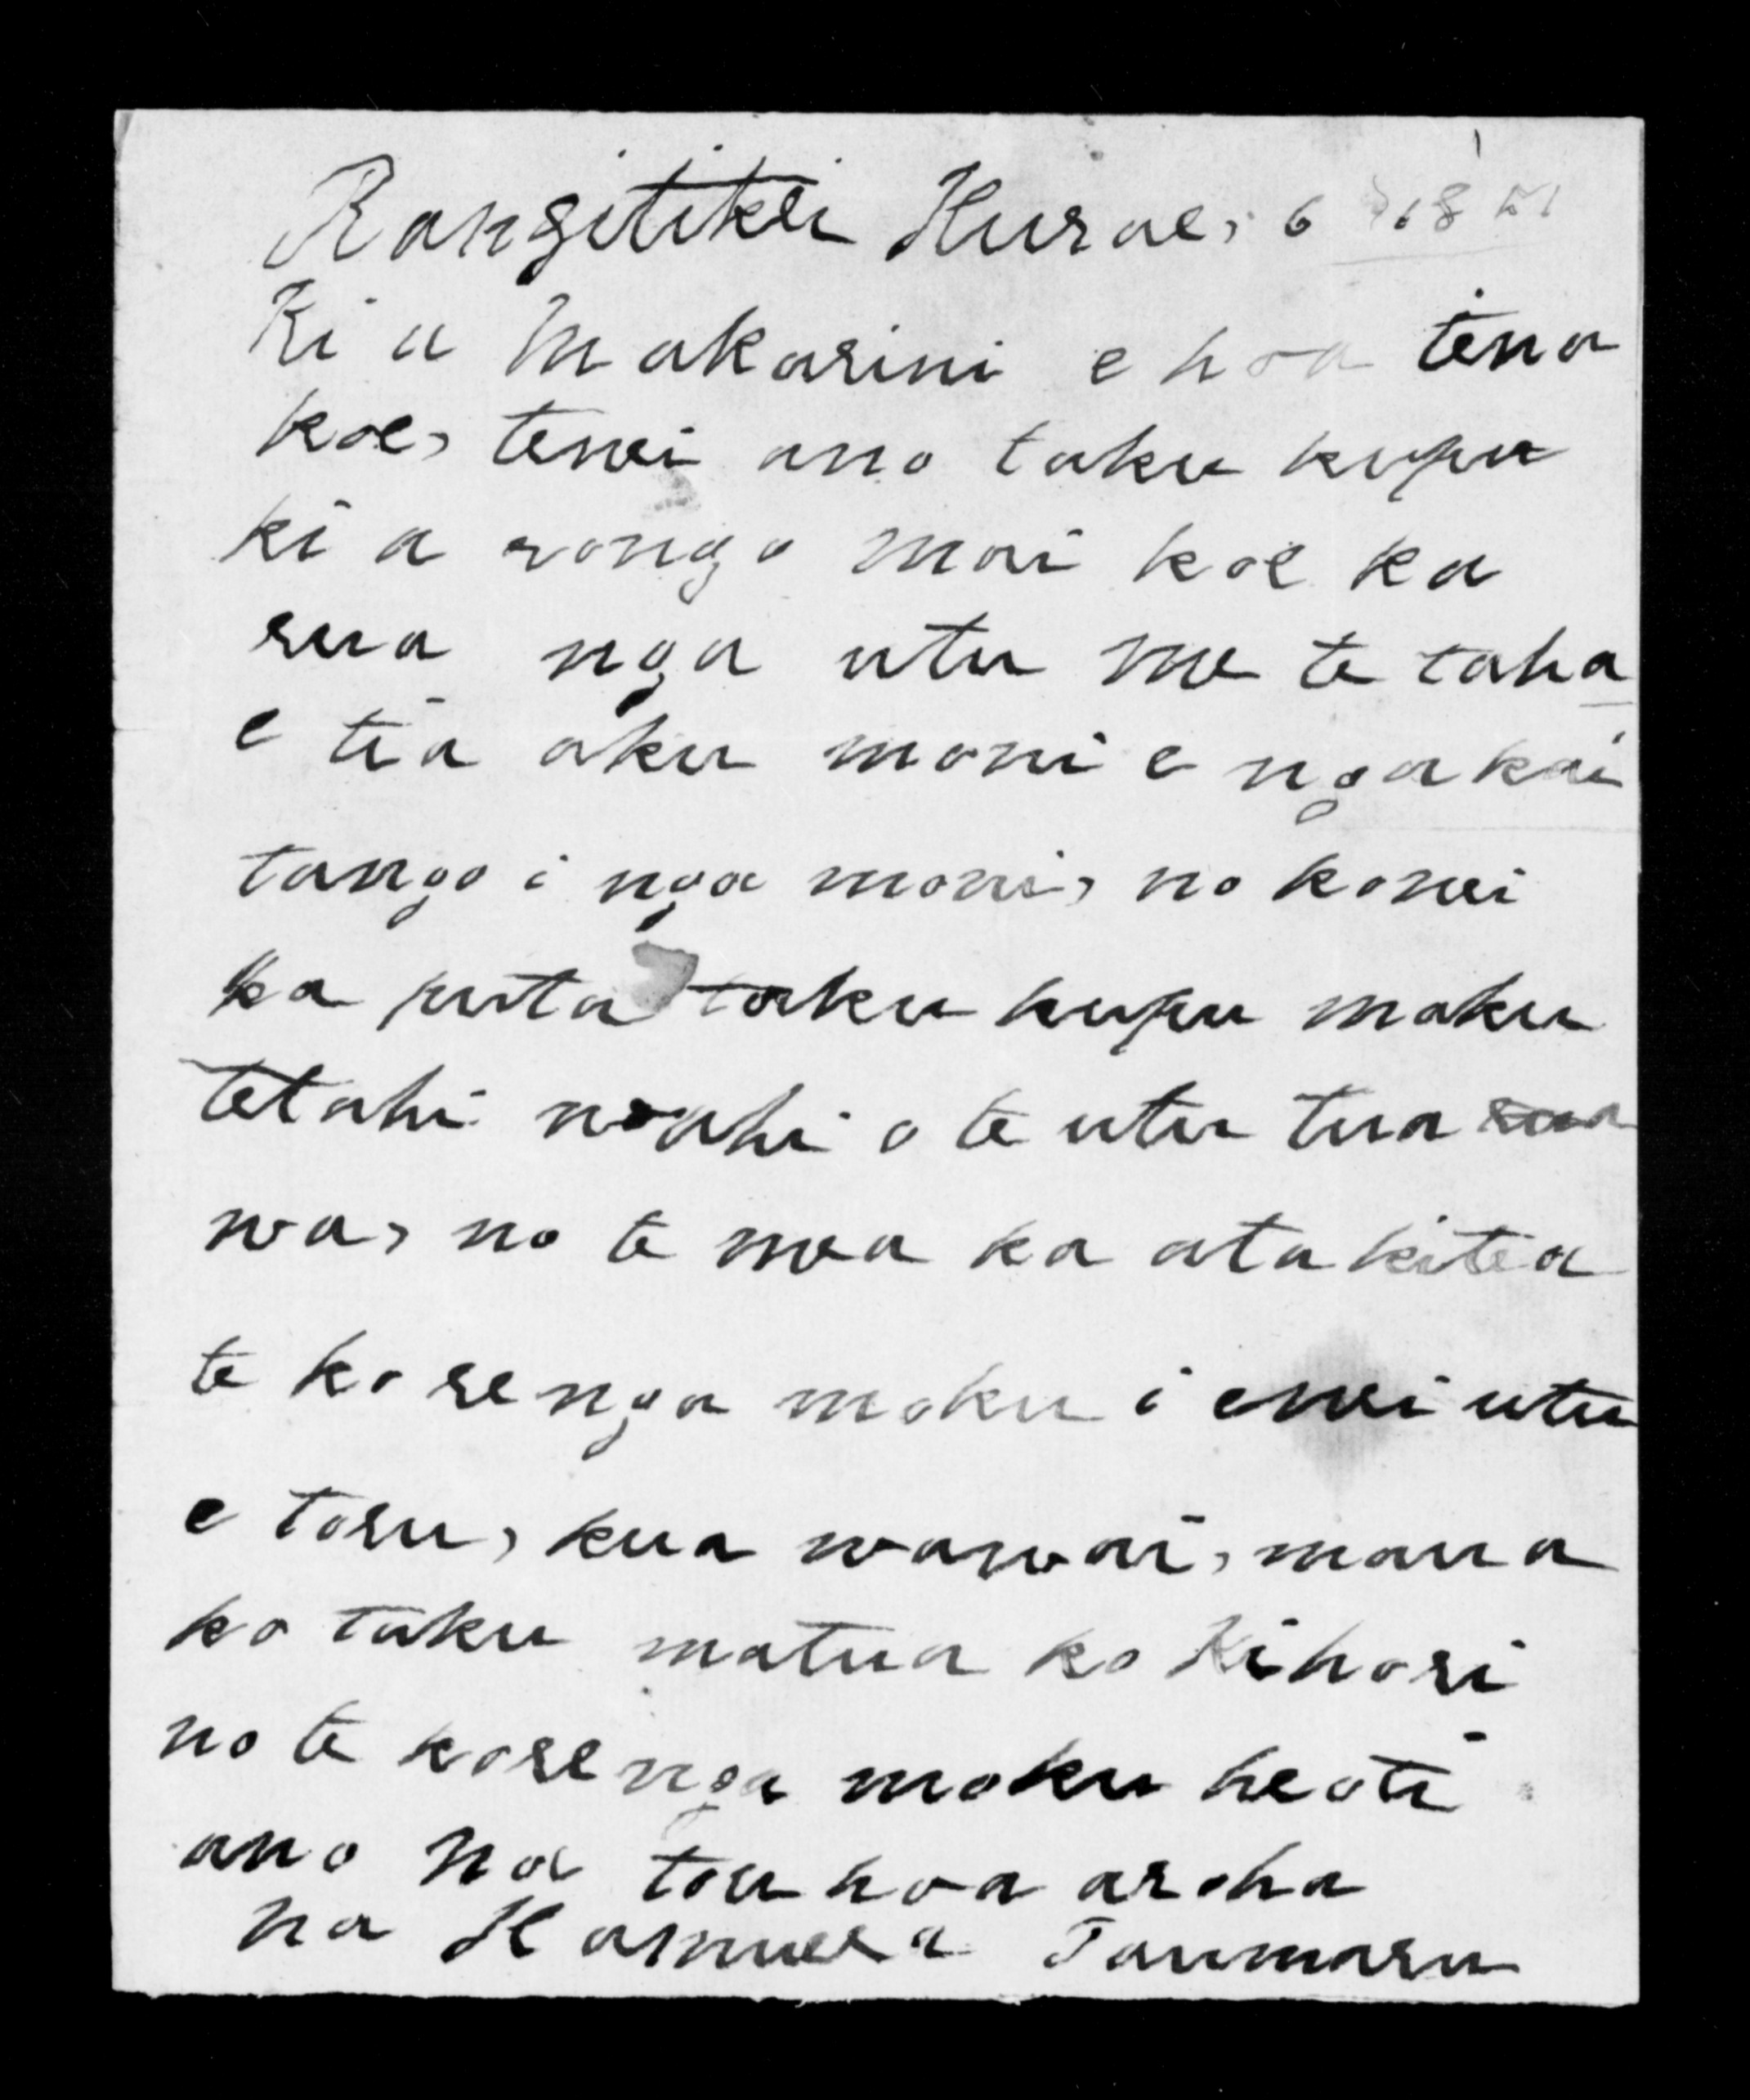 Rangitikei Hurae, 6 18 51
Ki a Makarini e hoa tena
koe, tenei ano taku kupu
ki a rongo mai koe ka
rua nga utu me te taha
e tia aku moni e nga kai
tango i nga moni, no konei
ka puta taku kupu maku
tetahi wahi o te utu tua
wa, no te mea ka ata kitea
te korenga moku i enei utu
e toru, kua wawai, maua
ko taku matua ko Kihori
no te korenga moku heoti
ano na tou hoa aroha
na Hamuera Taumaru